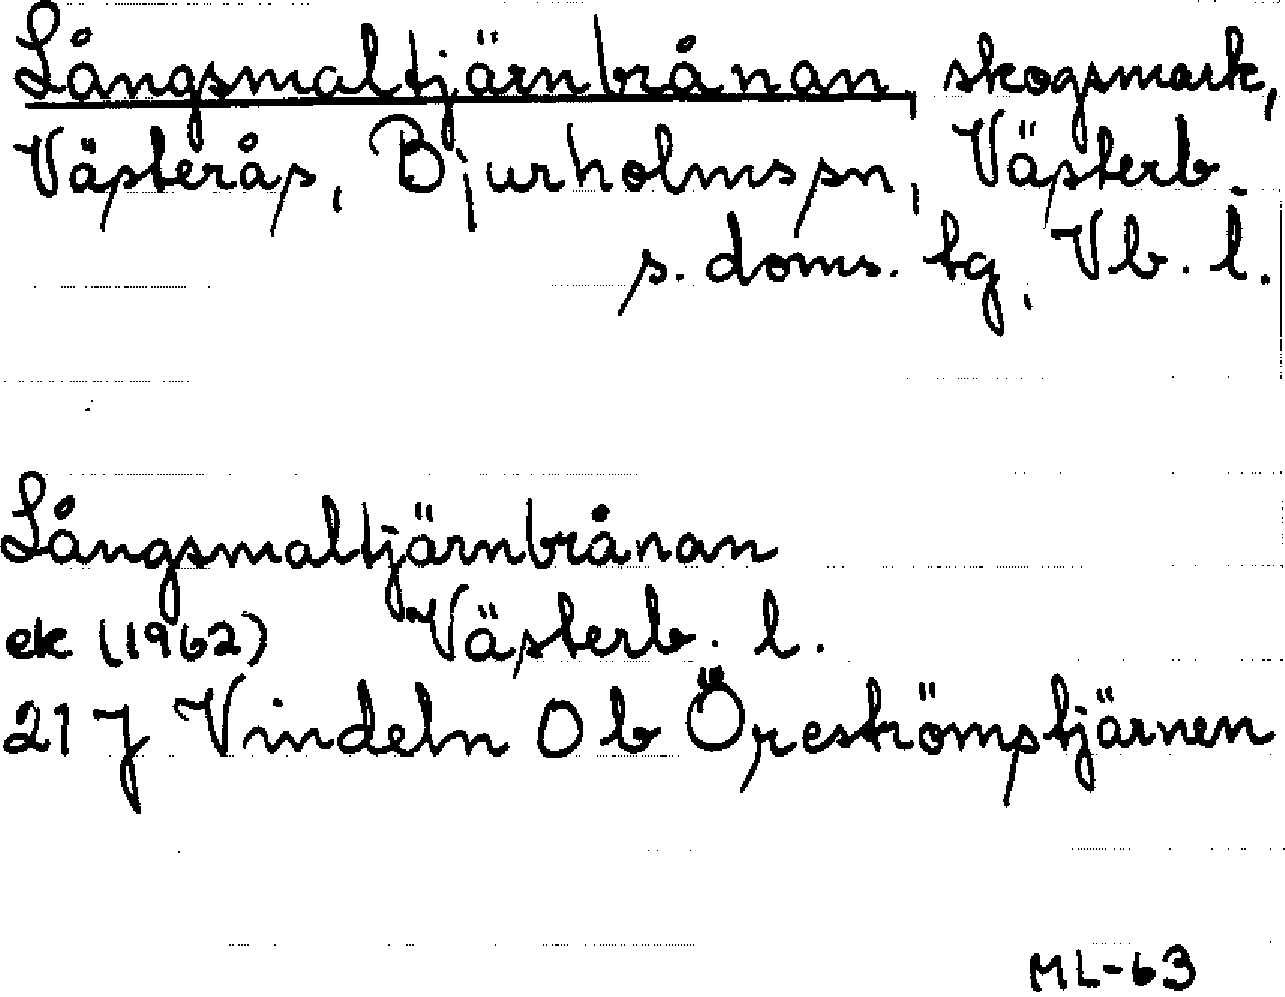 Långsmaltjärnbrånan, skogsmark,
Västerås, Bjurholms sn, Västerb.
s. doms. bg, Vb. l.
Långsmaltjärnbrånan
ek (1962) Västerb. l.
21 J Vindeln 0 b Öreströmstjärnen
ML-63